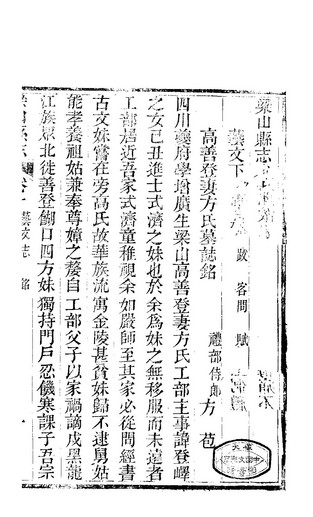 梁山縣志
藝文下
跋 客問 賦
高善登妻方氏墓誌銘
禮部侍郎 方苞
四川夔府學增廣生梁山高善登妻方氏工部主事諱登嶧
之女己丑進士式濟之妹也於余為妹之無移服而未遠者
工部居近吾家式濟童稚視余如嚴師至其家必從問經書
古文妹嘗在旁高氏故華族流寓金陵甚貧妹歸不逮舅姑
能孝養祖姑兼奉尊嫜之嫠自工部父子以家禍謫戍黑龍
江族眾北徙善登餬口四方妹獨持門戶忍饑寒課子吾宗
藝文志 銘